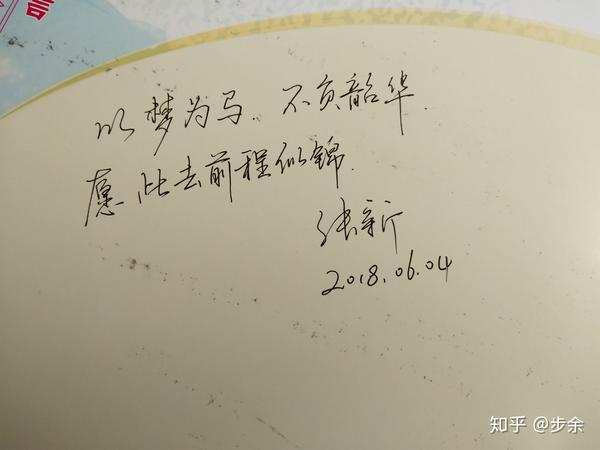 以梦为马.不负韶华.
愿此去前程似锦.
张新
2018.06.04
知乎 @步余